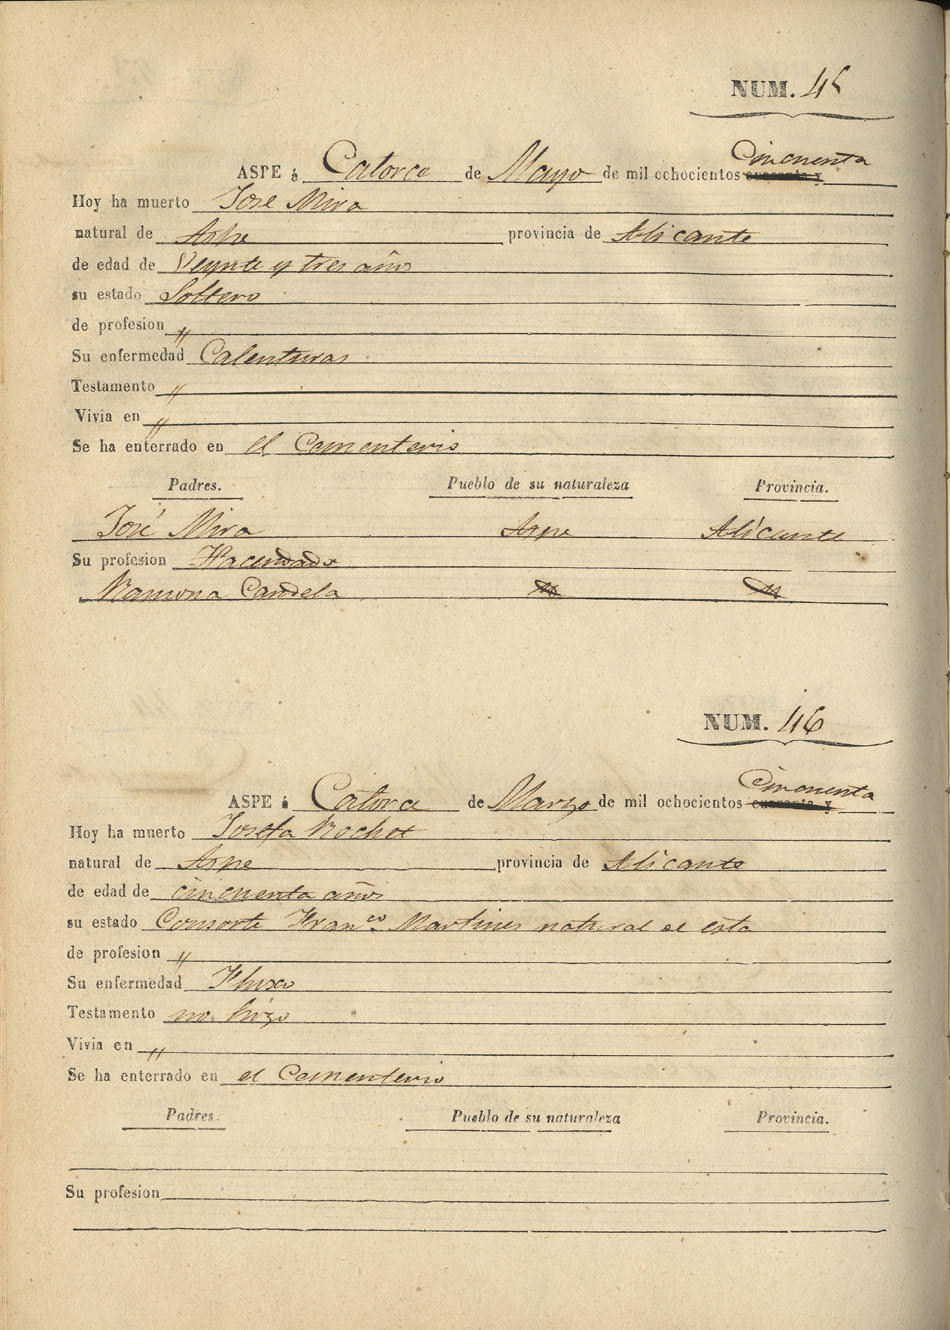 NUM. 45
Cincuenta
ASPE á Catorce de Marzo de mil ochocientos cuarenta y
Hoy ha muerto José Mira
natural de Aspe provincia de Alicante
de edad de Veynte y tres años
su estado Soltero
de profesion "
Su enfermedad Calenturas
Testamento "
Vivia en "
Se ha enterrado en el Cementerio
Padres. Pueblo de su naturaleza Provincia.
José Mira Aspe Alicante
Su profesion Hacendado
Ramona Candela
NUM. 46
Cincuenta
ASPE á Catorce de Marzo de mil ochocientos cuarenta y
Hoy ha muerto Josefa Bochet
natural de Aspe provincia de Alicante
de edad de cincuenta años
su estado Consorte Franco Martines natural de esta
de profesion "
Su enfermedad Fluxo
Testamento no hizo
Vivia en "
Se ha enterrado en el Cementerio
Padres. Pueblo de su naturaleza Provincia.
Su profesion